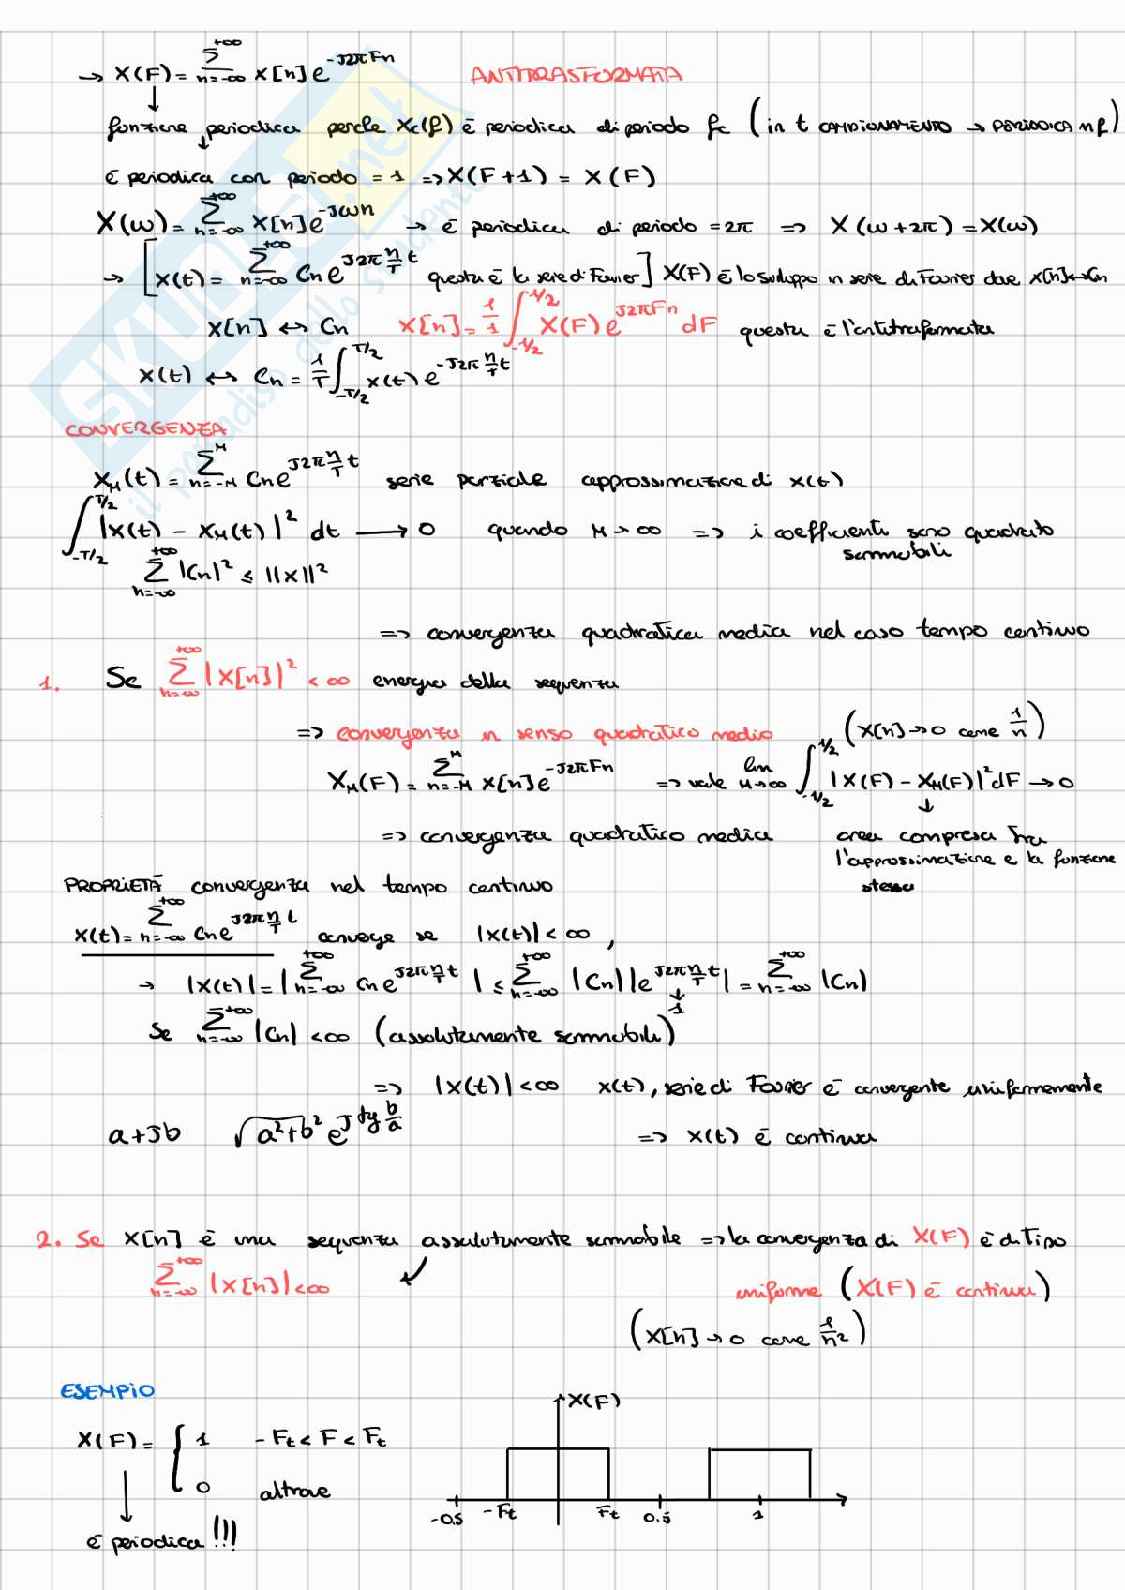 → X(F) = Σ_{n=-∞}^{+∞} x[n] e^{-J2πFn} ANTITRASFORMATA
funzione periodica perché Xc(f) è periodica di periodo fc (in t CAMPIONAMENTO → PERIODICA in f)
è periodica con periodo = 1 => X(F+1) = X(F)
X(ω) = Σ_{n=-∞}^{+∞} x[n] e^{-Jωn} → è periodica di periodo = 2π => X(ω+2π) = X(ω)
→ [x(t) = Σ_{n=-∞}^{+∞} Cn e^{J2π n/T t} questa è la serie di Fourier] X(F) è lo sviluppo in serie di Fourier dove x[n] ↔ Cn
x[n] ↔ Cn x[n] = 1/1 ∫_{-1/2}^{1/2} X(F) e^{J2πFn} dF questa è l'antitrasformata
x(t) ↔ Cn = 1/T ∫_{-T/2}^{T/2} x(t) e^{-J2π n/T t}
CONVERGENZA
X_M(t) = Σ_{n=-M}^{M} Cn e^{J2π n/T t} serie parziale approssimazione di x(t)
∫_{-T/2}^{T/2} |x(t) - X_M(t)|² dt → 0 quando M → ∞ => i coefficienti sono quadrato sommabili
Σ_{n=-∞}^{+∞} |Cn|² ≤ ||x||²
=> convergenza quadratica media nel caso tempo continuo
1. Se Σ_{n=-∞}^{+∞} |x[n]|² < ∞ energia della sequenza
=> convergenza in senso quadratico medio (x[n] → 0 come 1/n)
X_M(F) = Σ_{n=-M}^{M} x[n] e^{-J2πFn} => vale lim_{M→∞} ∫_{-1/2}^{1/2} |X(F) - X_M(F)|² dF → 0
=> convergenza quadratico media area compresa tra
l'approssimazione e la funzione
stessa
PROPRIETÀ convergenza nel tempo continuo
x(t) = Σ_{n=-∞}^{+∞} Cn e^{J2π n/T t} converge se |x(t)| < ∞,
→ |x(t)| = |Σ_{n=-∞}^{+∞} Cn e^{J2π n/T t}| ≤ Σ_{n=-∞}^{+∞} |Cn| |e^{J2π n/T t}| = Σ_{n=-∞}^{+∞} |Cn|
1
Se Σ_{n=-∞}^{+∞} |Cn| < ∞ (assolutamente sommabili)
=> |x(t)| < ∞ x(t), serie di Fourier è convergente uniformemente
a+Jb √(a²+b²) e^{J tg b/a} => x(t) è continua
2. Se x[n] è una sequenza assolutamente sommabile => la convergenza di X(F) è di tipo
Σ_{n=-∞}^{+∞} |x[n]| < ∞ uniforme (X(F) è continua)
(x[n] → 0 come 1/n²)
ESEMPIO
X(F)
X(F) = { 1 -Ft < F < Ft
0 altrove
-0.5 -Ft Ft 0.5 1
è periodica !!!
SKUOLA.net
il paradiso dello studente